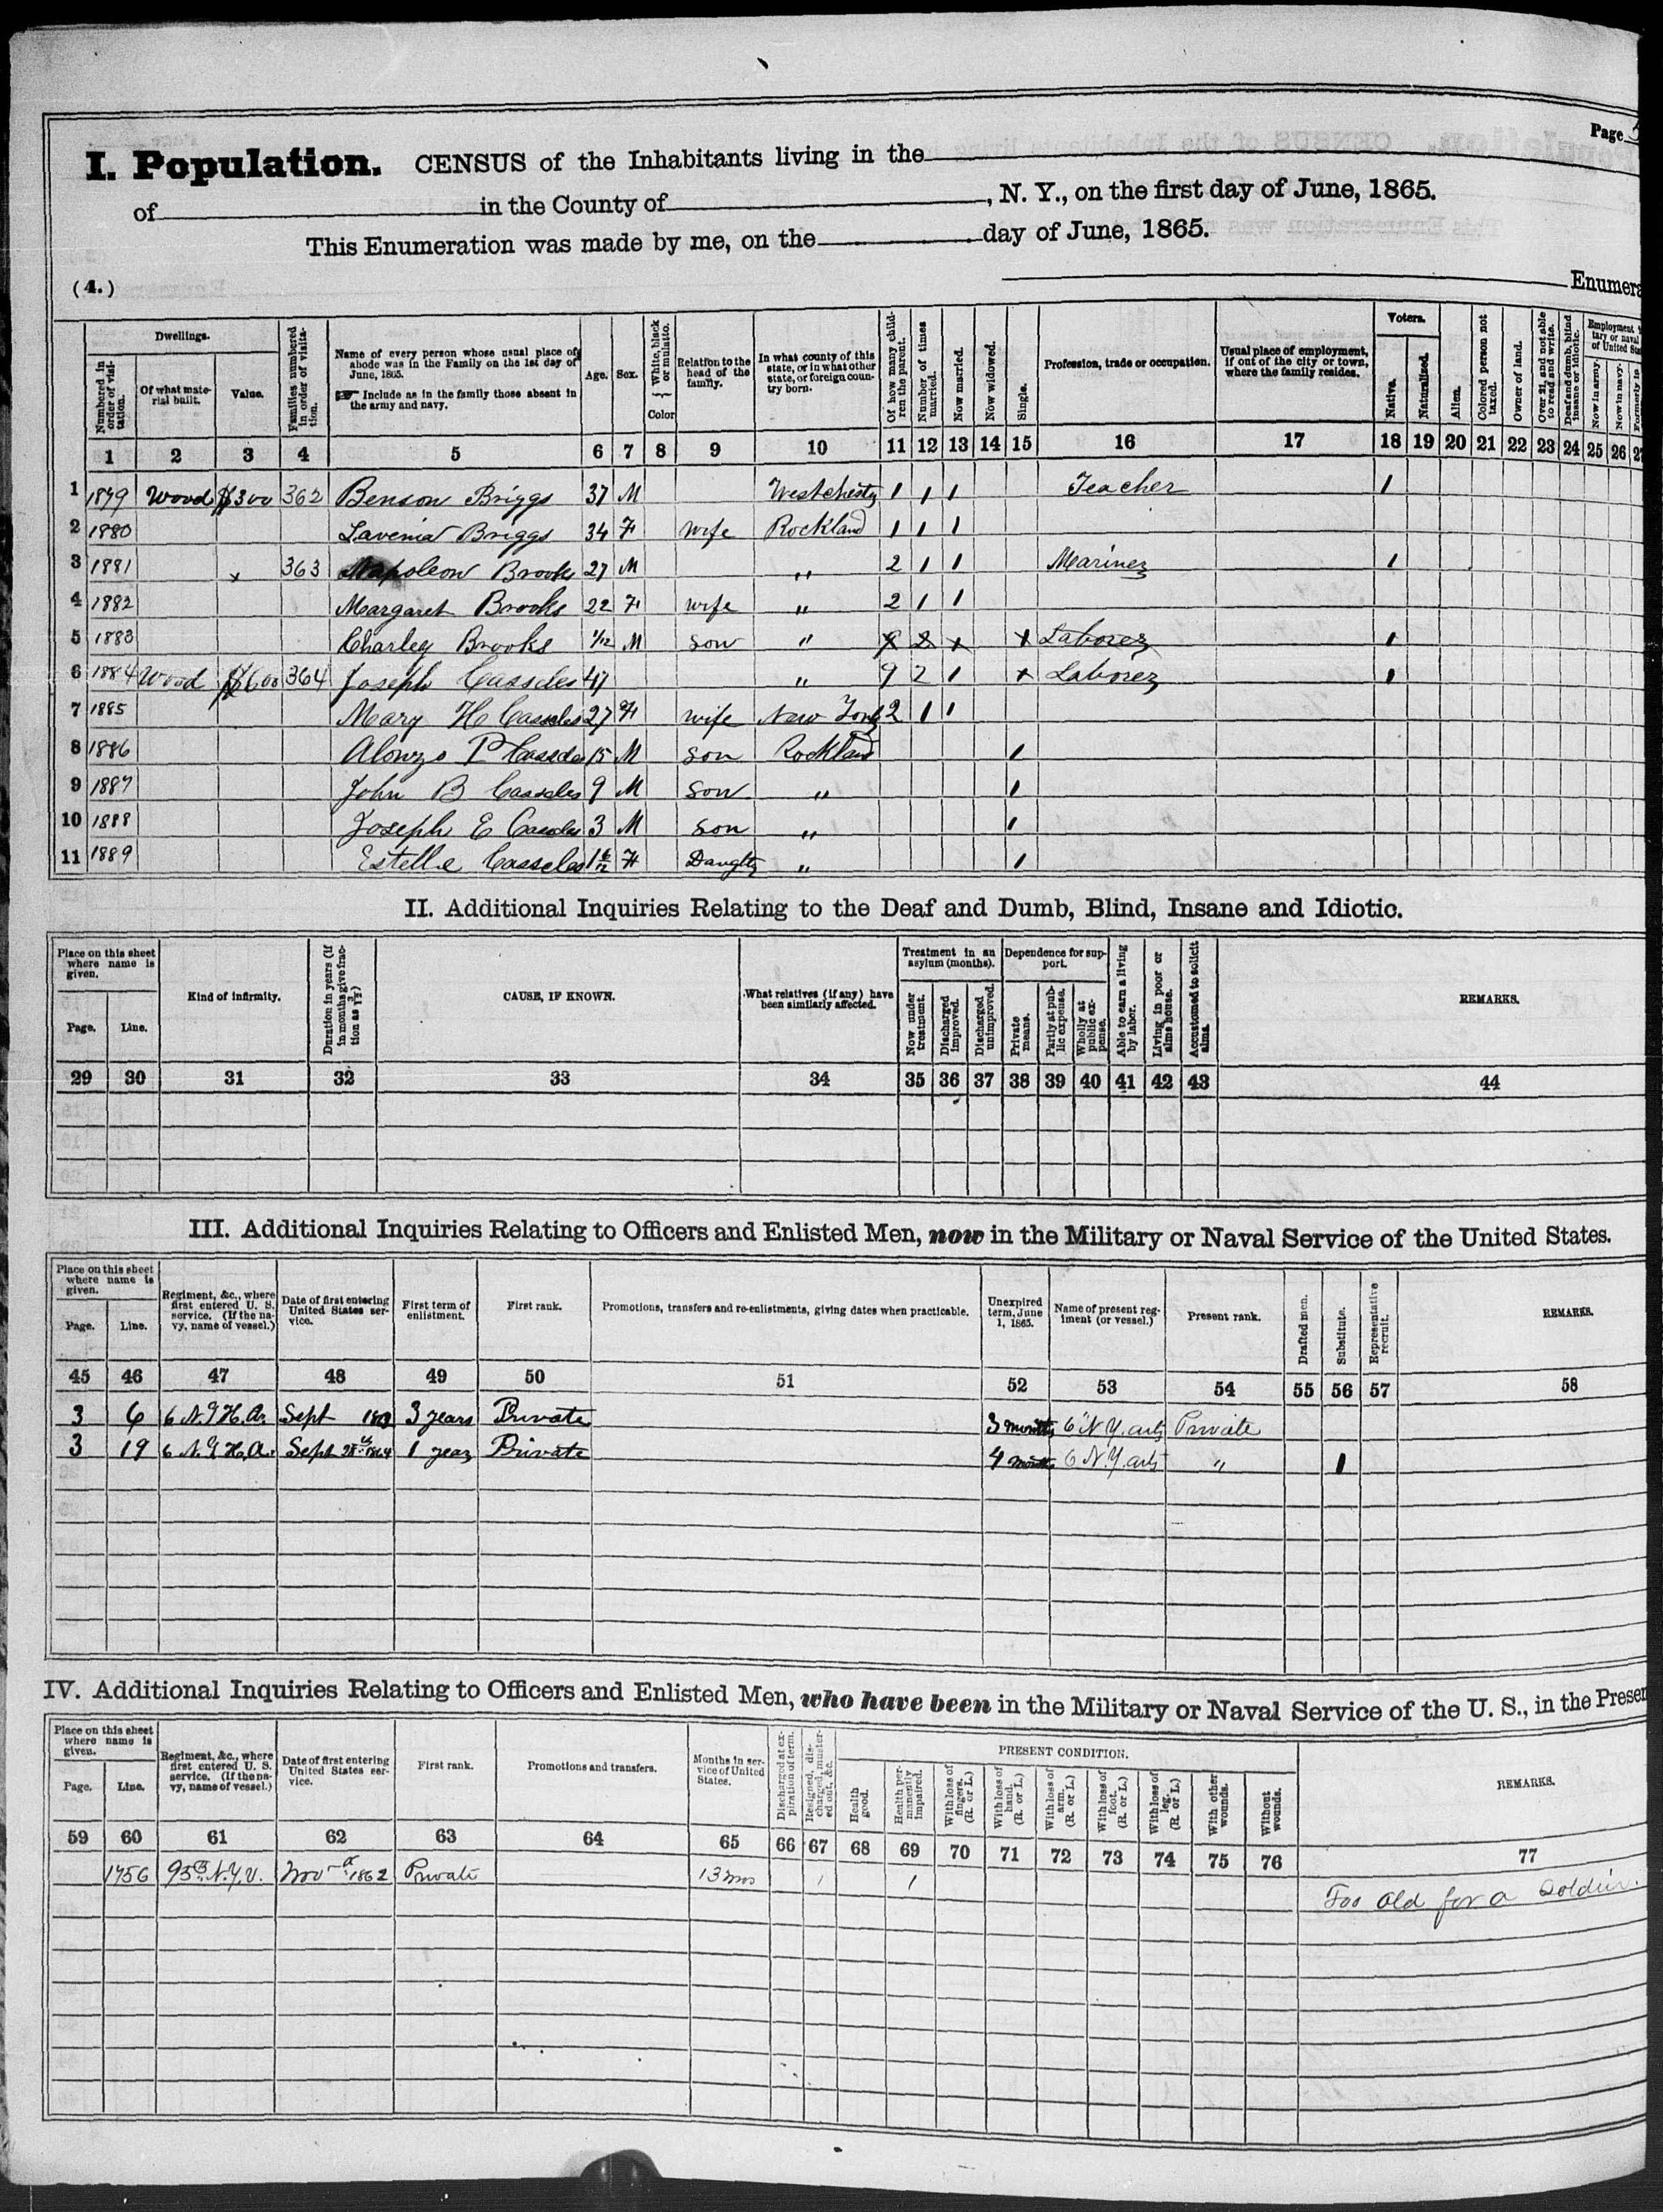 Page
I. Population. CENSUS of the Inhabitants living in the
of in the County of , N. Y., on the first day of June, 1865.
This Enumeration was made by me, on the day of June, 1865.
(4.) Enumera
Numbered in order of visitation.
Dwellings.
Of what material built.
Value.
Families numbered in order of visitation.
Name of every person whose usual place of abode was in the Family on the 1st day of June, 1865.
Include as in the family those absent in the army and navy.
Age.
Sex.
White, black or mulatto.
Color
Relation to the head of the family.
In what county of this state, or in what other state, or foreign country born.
Of how many children the parent.
Number of times married.
Now married.
Now widowed.
Single.
Profession, trade or occupation.
Usual place of employment, if out of the city or town, where the family resides.
Voters.
Native.
Naturalized.
Alien.
Colored person not taxed.
Owner of land.
Over 21, and not able to read and write.
Deaf and dumb, blind insane or idiotic.
Employment
tary or naval
of United Sta
Now in army.
Now in navy.
Formerly in
1 2 3 4 5 6 7 8 9 10 11 12 13 14 15 16 17 18 19 20 21 22 23 24 25 26 27
1 1879 Wood $300 362 Benson Briggs 37 M Westchester 1 1 1 Teacher 1
2 1880 Lavenia Briggs 34 F wife Rockland 1 1 1
3 1881 x 363 Napoleon Brooks 27 M " 2 1 1 Mariner 1
4 1882 Margaret Brooks 22 F wife " 2 1 1
5 1883 Charley Brooks 1/12 M son " 9 2 x x Laborer 1
6 1884 Wood $600 364 Joseph Casscles 47 " 9 2 1 x Laborer 1
7 1885 Mary H Casscles 27 F wife New York 2 1 1
8 1886 Alonzo P Casscles 15 M son Rockland 1
9 1887 John B Casscles 9 M son " 1
10 1888 Joseph E Casscles 3 M son " 1
11 1889 Estelle Casscles 1 6/12 F Daughter " 1
II. Additional Inquiries Relating to the Deaf and Dumb, Blind, Insane and Idiotic.
Place on this sheet where name is given.
Page.
Line.
Kind of infirmity.
Duration in years (if in months give fraction as 3/12)
CAUSE, IF KNOWN.
What relatives (if any) have been similarly affected.
Treatment in an asylum (months).
Now under treatment.
Discharged improved.
Discharged unimproved.
Dependence for support.
Private means.
Partly at public expense.
Wholly at public expense.
Able to earn a living by labor.
Living in poor or alms house.
Accustomed to solicit alms.
REMARKS.
29 30 31 32 33 34 35 36 37 38 39 40 41 42 43 44
III. Additional Inquiries Relating to Officers and Enlisted Men, now in the Military or Naval Service of the United States.
Place on this sheet where name is given.
Page.
Line.
Regiment, &c., where first entered U. S. service. (If the navy, name of vessel.)
Date of first entering United States service.
First term of enlistment.
First rank.
Promotions, transfers and re-enlistments, giving dates when practicable.
Unexpired term, June 1, 1865.
Name of present regiment (or vessel.)
Present rank.
Drafted men.
Substitute.
Representative recruit.
REMARKS.
45 46 47 48 49 50 51 52 53 54 55 56 57 58
3 6 6 N.Y H.Ar. Sept 3 years Private 3 months 6" N Y. arty Private
3 19 6 N.Y H.A. Sept 1864 1 year Private 4 months 6 N.Y. arty " 1
IV. Additional Inquiries Relating to Officers and Enlisted Men, who have been in the Military or Naval Service of the U. S., in the Presen
Place on this sheet where name is given.
Page.
Line.
Regiment, &c., where first entered U. S. service. (If the navy, name of vessel.)
Date of first entering United States service.
First rank.
Promotions and transfers.
Months in service of United States.
Discharged at expiration of term.
Resigned, discharged, mustered out, &c.
PRESENT CONDITION.
Health good.
Health permanently impaired.
With loss of fingers. (R. or L.)
With loss of hand. (R. or L.)
With loss of arm. (R. or L.)
With loss of foot. (R. or L.)
With loss of leg. (R. or L.)
With other wounds.
Without wounds.
REMARKS.
59 60 61 62 63 64 65 66 67 68 69 70 71 72 73 74 75 76 77
1756 95th N.Y.V. Nov 1862 Private 13 mos 1 1 Too old for a Soldier.